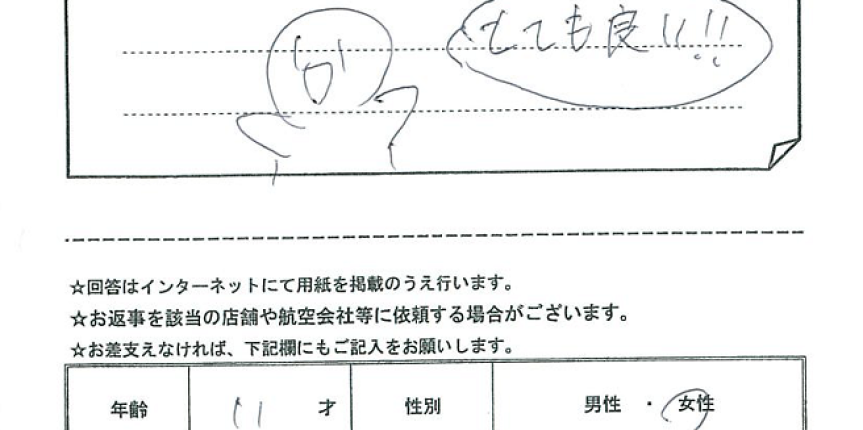 とても良い!!
☆回答はインターネットにて用紙を掲載のうえ行います。
☆お返事を該当の店舗や航空会社等に依頼する場合がございます。
☆お差支えなければ、下記欄にもご記入をお願いします。
年齢 11 才 性別 男性 ・ 女性